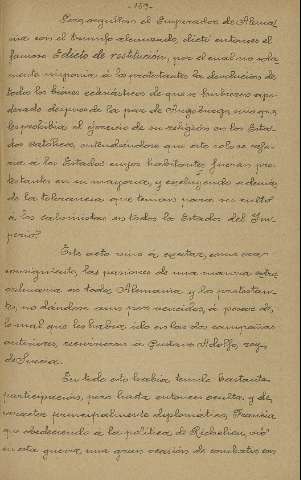 -169-
Enorgullecido el Emperador de Alema-
nia con el triunfo alcanzado, dictó entonces el
famoso Edicto de restitución, por el cual no sola
mente imponía á los protestantes la devolución de
todos los bienes eclesiásticos de que se hubiesen apo-
derado después de la paz de Augsburgo, sino que
les prohibía el ejercicio de su religión en los Esta-
dos católicos, entendiéndose que esto solo se refe-
ría á los Estados cuyos habitantes fueran pro-
testantes en su mayoría, y excluyendo además
de la tolerancia que tenían para su culto
á los calvinistas en todos los Estados del Im-
perio.
Este acto vino á excitar, como era
consiguiente, las pasiones de una manera extra-
ordinaria en toda Alemania y los protestan-
tes, no dándose aun por vencidos, á pesar de
lo mal que les había ido en las dos campañas
anteriores, convinieron á Gustavo Adolfo, rey
de Suecia.
En todo esto había tenido bastante
participación, pero hasta entonces oculta y de
carácter principalmente diplomático, Francia
que obedeciendo á la política de Richelieu, vió
en esta guerra, una gran ocasión de combatir con